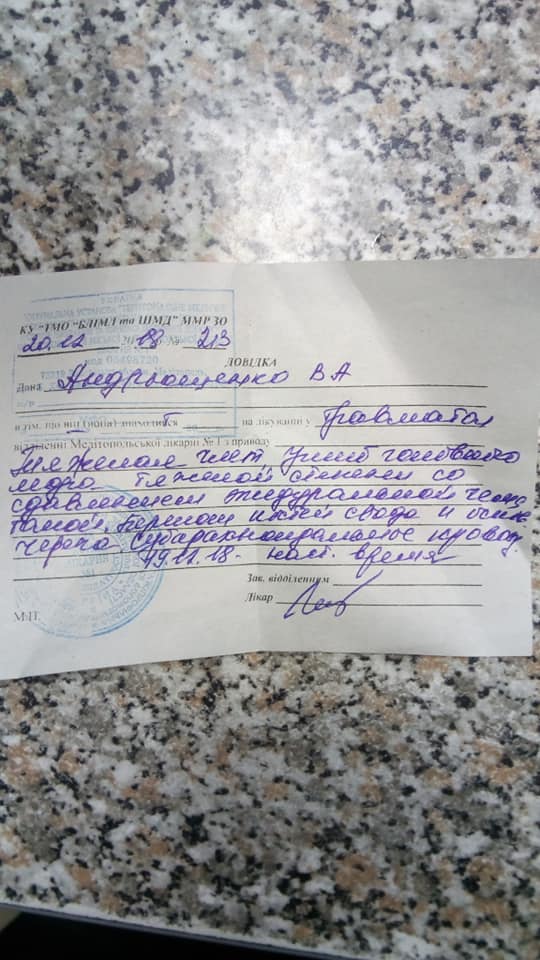 УКРАЇНА
КУ "ТМО "БЛІМЛ та ШМД" ММР ЗО
20.12 2018 № 213
код 05498720
ДОВІДКА
Дана Андрющенко В А
в тім, що він (вона) знаходится на лікуванні у Травматол
відділенні Мелітопольської лікарні № 1 з приводу
Тяжелая чмт, Ушиб головного
мозга тяжелой степени со
сдавлением эпидуральной гема
томой, перелом костей свода и основ
черепа. Субарахноидальное кровоизл.
19.11.18 - наст. время
Зав. відділенням
Лікар
М.П.